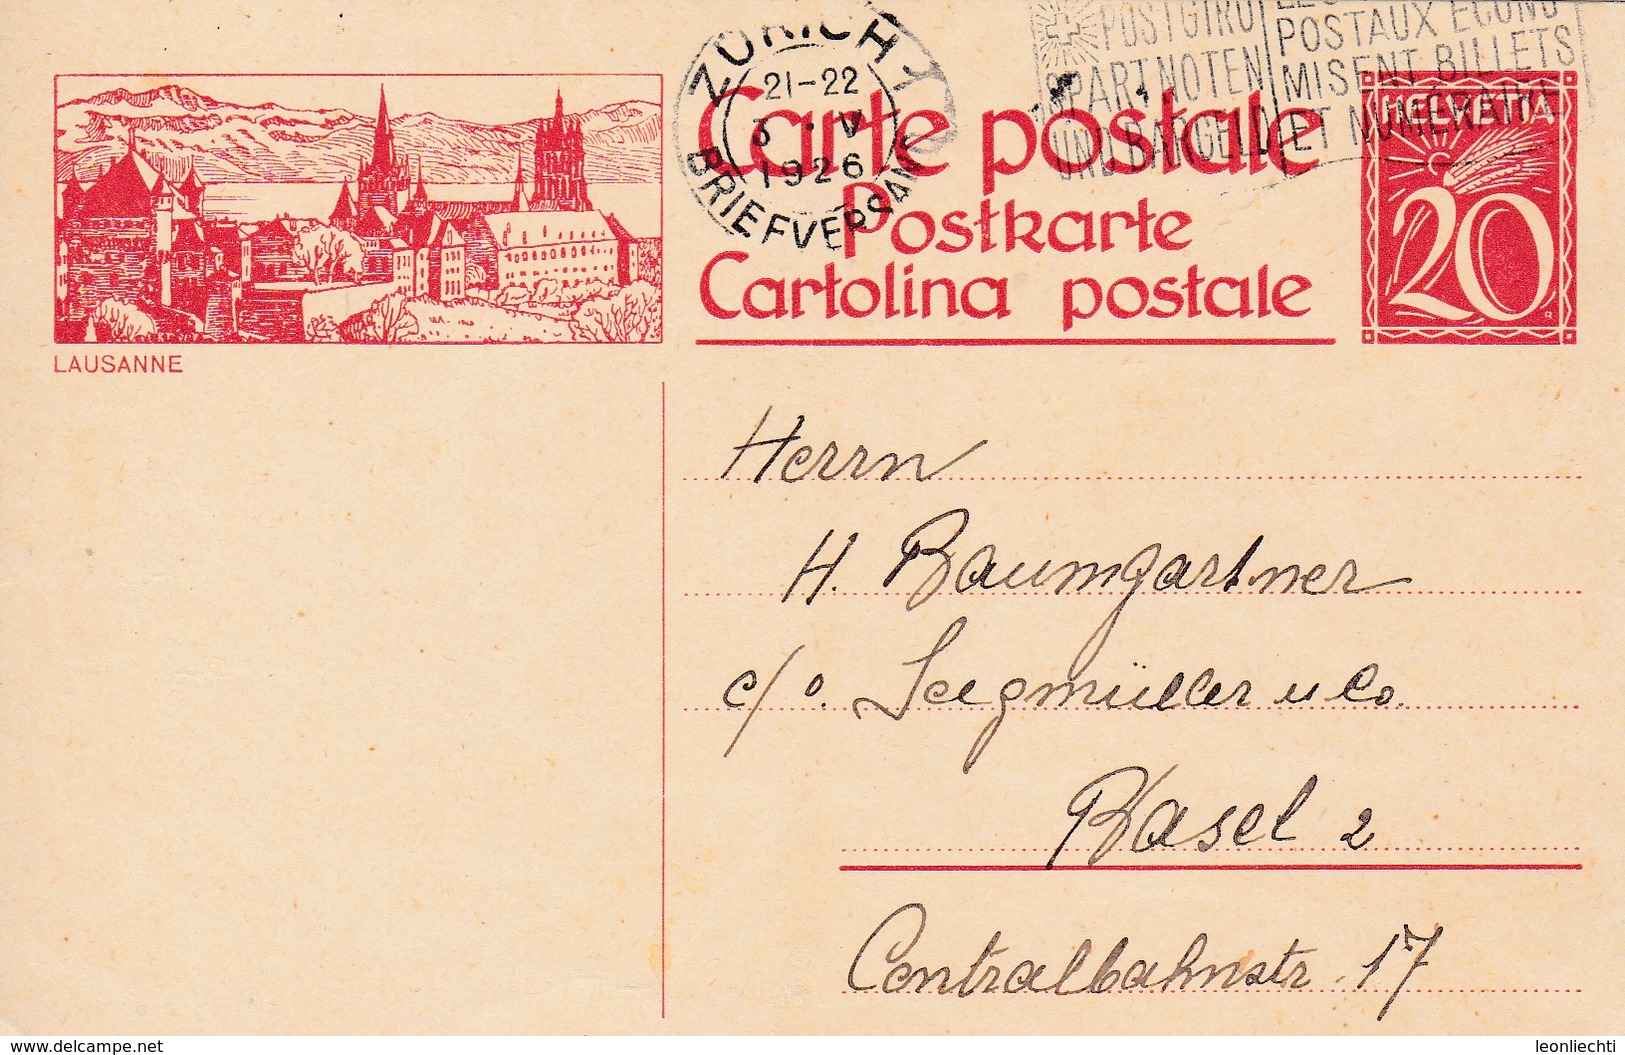 ZÜRICH 1
21-22
3 . V
1926
BRIEFVERSAND
POSTGIRO
SPART NOTEN
UND BARGELD
POSTAUX ÉCONO
MISENT BILLETS
ET NUMÉRAIRE
Carte postale
Postkarte
Cartolina postale
HELVETIA
20
LAUSANNE
Herrn
H. Baumgartner
c/o. Seegmüller u Co.
Basel 2
Centralbahnstr. 17
www.delcampe.net
leonliechti